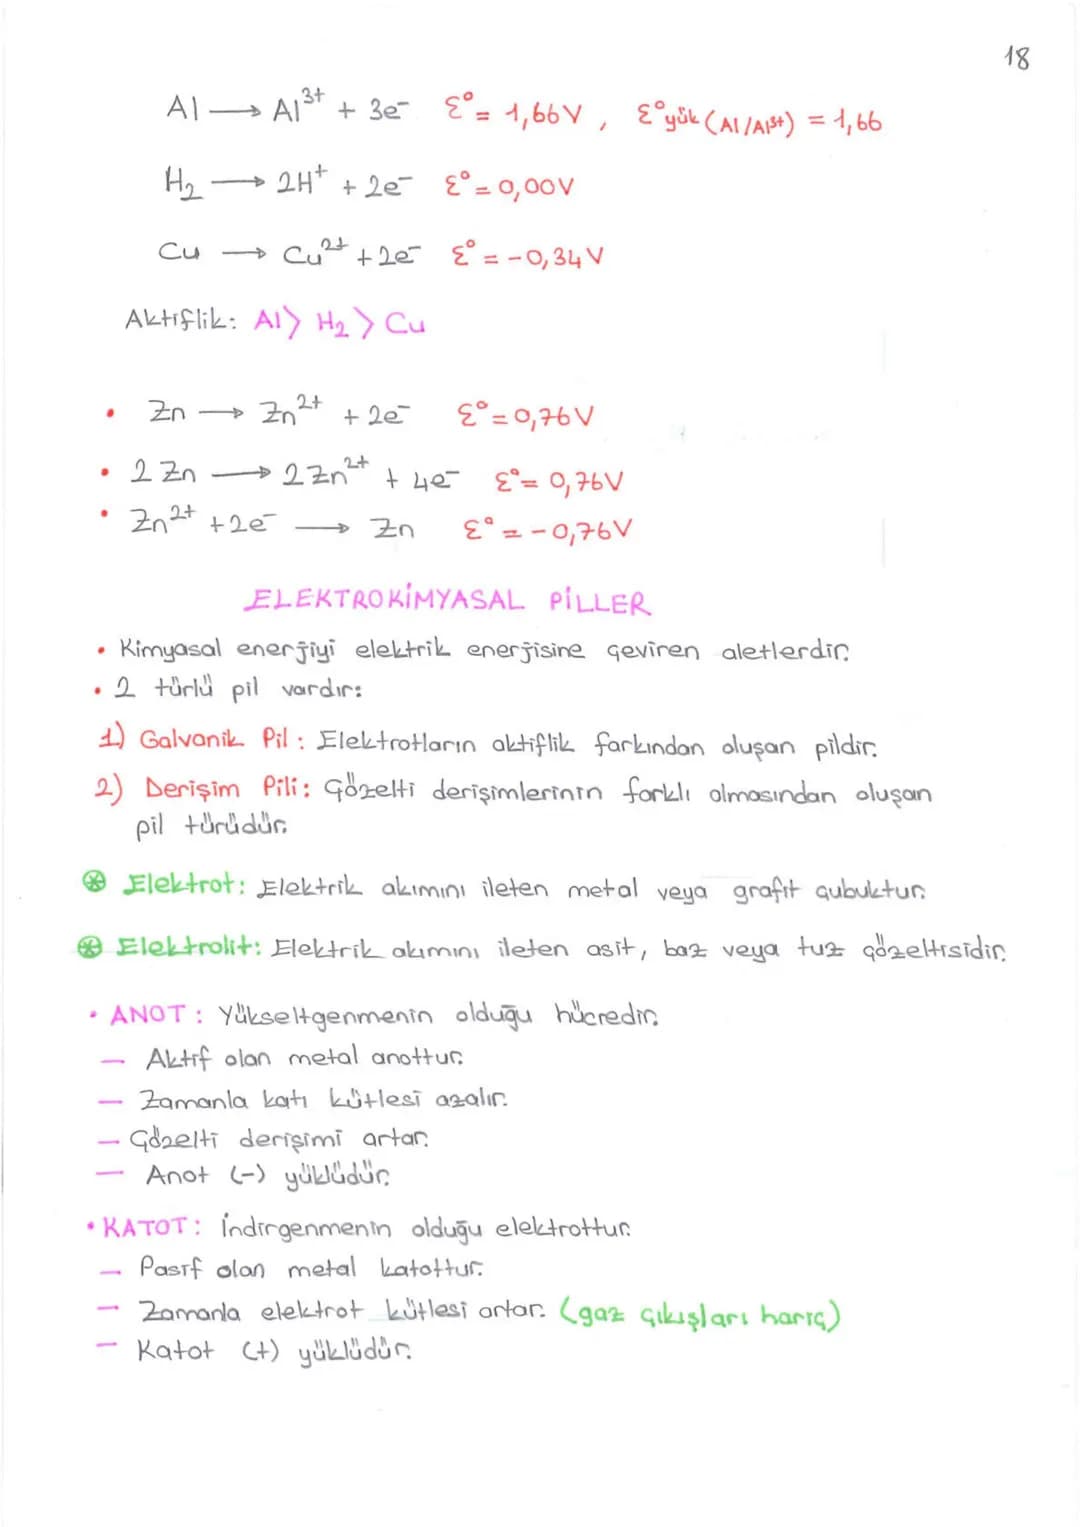 18
Al → Al³⁺ + 3e⁻ Ɛ° = 1,66V, Ɛ°yük (Al/Al³⁺) = 1,66
H₂ → 2H⁺ + 2e⁻ Ɛ° = 0,00V
Cu → Cu²⁺ + 2e⁻ Ɛ° = -0,34V
Aktiflik: Al > H₂ > Cu
• Zn → Zn²⁺ + 2e⁻ Ɛ° = 0,76V
• 2 Zn → 2 Zn²⁺ + 4e⁻ Ɛ° = 0,76V
• Zn²⁺ + 2e⁻ → Zn Ɛ° = -0,76V
ELEKTROKİMYASAL PİLLER
• Kimyasal enerjiyi elektrik enerjisine çeviren aletlerdir.
• 2 türlü pil vardır:
1) Galvanik Pil: Elektrotların aktiflik farkından oluşan pildir.
2) Derişim Pili: Çözelti derişimlerinin farklı olmasından oluşan
pil türüdür.
⊛ Elektrot: Elektrik akımını ileten metal veya grafit çubuktur.
⊛ Elektrolit: Elektrik akımını ileten asit, baz veya tuz çözeltisidir.
• ANOT: Yükseltgenmenin olduğu hücredir.
— Aktif olan metal anottur.
— Zamanla katı kütlesi azalır.
— Çözelti derişimi artar.
— Anot (-) yüklüdür.
• KATOT: İndirgenmenin olduğu elektrottur.
— Pasif olan metal katottur.
— Zamanla elektrot kütlesi artar. (gaz çıkışları hariç)
— Katot (+) yüklüdür.